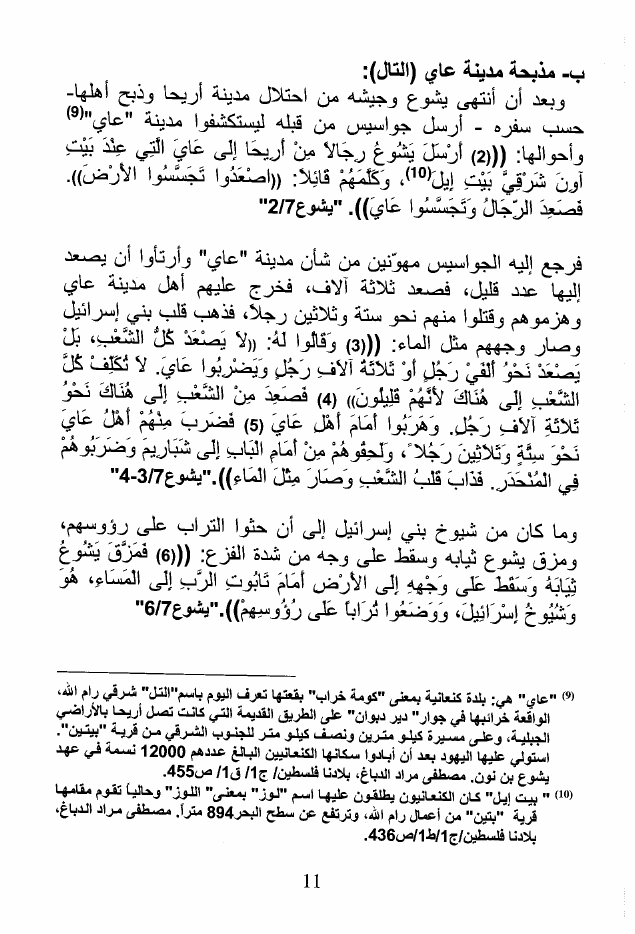 ب- مذبحة مدينة عاي (التال):
وبعد أن أنتهى يشوع وجيشه من احتلال مدينة أريحا وذبح أهلها-
حسب سفره - أرسل جواسيس من قبله ليستكشفوا مدينة "عاي"(9)
وأحوالها: (((2) أَرْسَلَ يَشُوعُ رِجَالاً مِنْ أَرِيحَا إِلَى عَايَ الَّتِي عِنْدَ بَيْتِ
آوِنَ شَرْقِيَّ بَيْتِ إِيلَ(10)، وَكَلَّمَهُمْ قَائِلاً: ((اصْعَدُوا تَجَسَّسُوا الأَرْضَ)).
فَصَعِدَ الرِّجَالُ وَتَجَسَّسُوا عَايَ)). "يشوع2/7"
فرجع إليه الجواسيس مهوّنين من شأن مدينة "عاي" وأرتأوا أن يصعد
إليها عدد قليل، فصعد ثلاثة آلاف، فخرج عليهم أهل مدينة عاي
وهزموهم وقتلوا منهم نحو ستة وثلاثين رجلاً، فذهب قلب بني إسرائيل
وصار وجههم مثل الماء: (((3) وَقَالُوا لَهُ: ((لاَ يَصْعَدْ كُلُّ الشَّعْبِ، بَلْ
يَصْعَدْ نَحْوُ أَلْفَيْ رَجُلٍ أَوْ ثَلاَثَةُ آلاَفِ رَجُلٍ وَيَضْرِبُوا عَايَ. لاَ تُكَلِّفْ كُلَّ
الشَّعْبِ إِلَى هُنَاكَ لأَنَّهُمْ قَلِيلُونَ)) (4) فَصَعِدَ مِنْ الشَّعْبِ إِلَى هُنَاكَ نَحْوُ
ثَلاَثَةِ آلاَفِ رَجُلٍ. وَهَرَبُوا أَمَامَ أَهْلِ عَايَ (5) فَضَرَبَ مِنْهُمْ أَهْلُ عَايَ
نَحْوَ سِتَّةٍ وَثَلاَثِينَ رَجُلاً، وَلَحِقُوهُمْ مِنْ أَمَامِ الْبَابِ إِلَى شَبَارِيمَ وَضَرَبُوهُمْ
فِي الْمُنْحَدَرِ. فَذَابَ قَلْبُ الشَّعْبِ وَصَارَ مِثْلَ الْمَاءِ)). "يشوع3/7-4"
وما كان من شيوخ بني إسرائيل إلى أن حثوا التراب على رؤوسهم،
ومزق يشوع ثيابه وسقط على وجه من شدة الفزع: (((6) فَمَزَّقَ يَشُوعُ
ثِيَابَهُ وَسَقَطَ عَلَى وَجْهِهِ إِلَى الأَرْضِ أَمَامَ تَابُوتِ الرَّبِّ إِلَى الْمَسَاءِ، هُوَ
وَشُيُوخُ إِسْرَائِيلَ، وَوَضَعُوا تُرَاباً عَلَى رُؤُوسِهِمْ)). "يشوع6/7"
(9) "عاي" هي: بلدة كنعانية بمعنى "كومة خراب" بقعتها تعرف اليوم باسم"التل" شرقي رام الله،
الواقعة خرائبها في جوار" دير دبوان" على الطريق القديمة التي كانت تصل أريحا بالأراضي
الجبلية، وعلى مسيرة كيلو مترين ونصف كيلو متر للجنوب الشرقي من قرية "بيتين".
استولي عليها اليهود بعد أن أبادوا سكانها الكنعانيين البالغ عددهم 12000 نسمة في عهد
يشوع بن نون. مصطفى مراد الدباغ، بلادنا فلسطين/ ج1/ ق1/ ص455.
(10) " بيت إيل" كان الكنعانيون يطلقون عليها اسم "لوز" بمعنى" اللوز" وحالياً تقوم مقامها
قرية "بتين" من أعمال رام الله، وترتفع عن سطح البحر894 متراً. مصطفى مراد الدباغ،
بلادنا فلسطين/ج1/ط1/ص436.
11